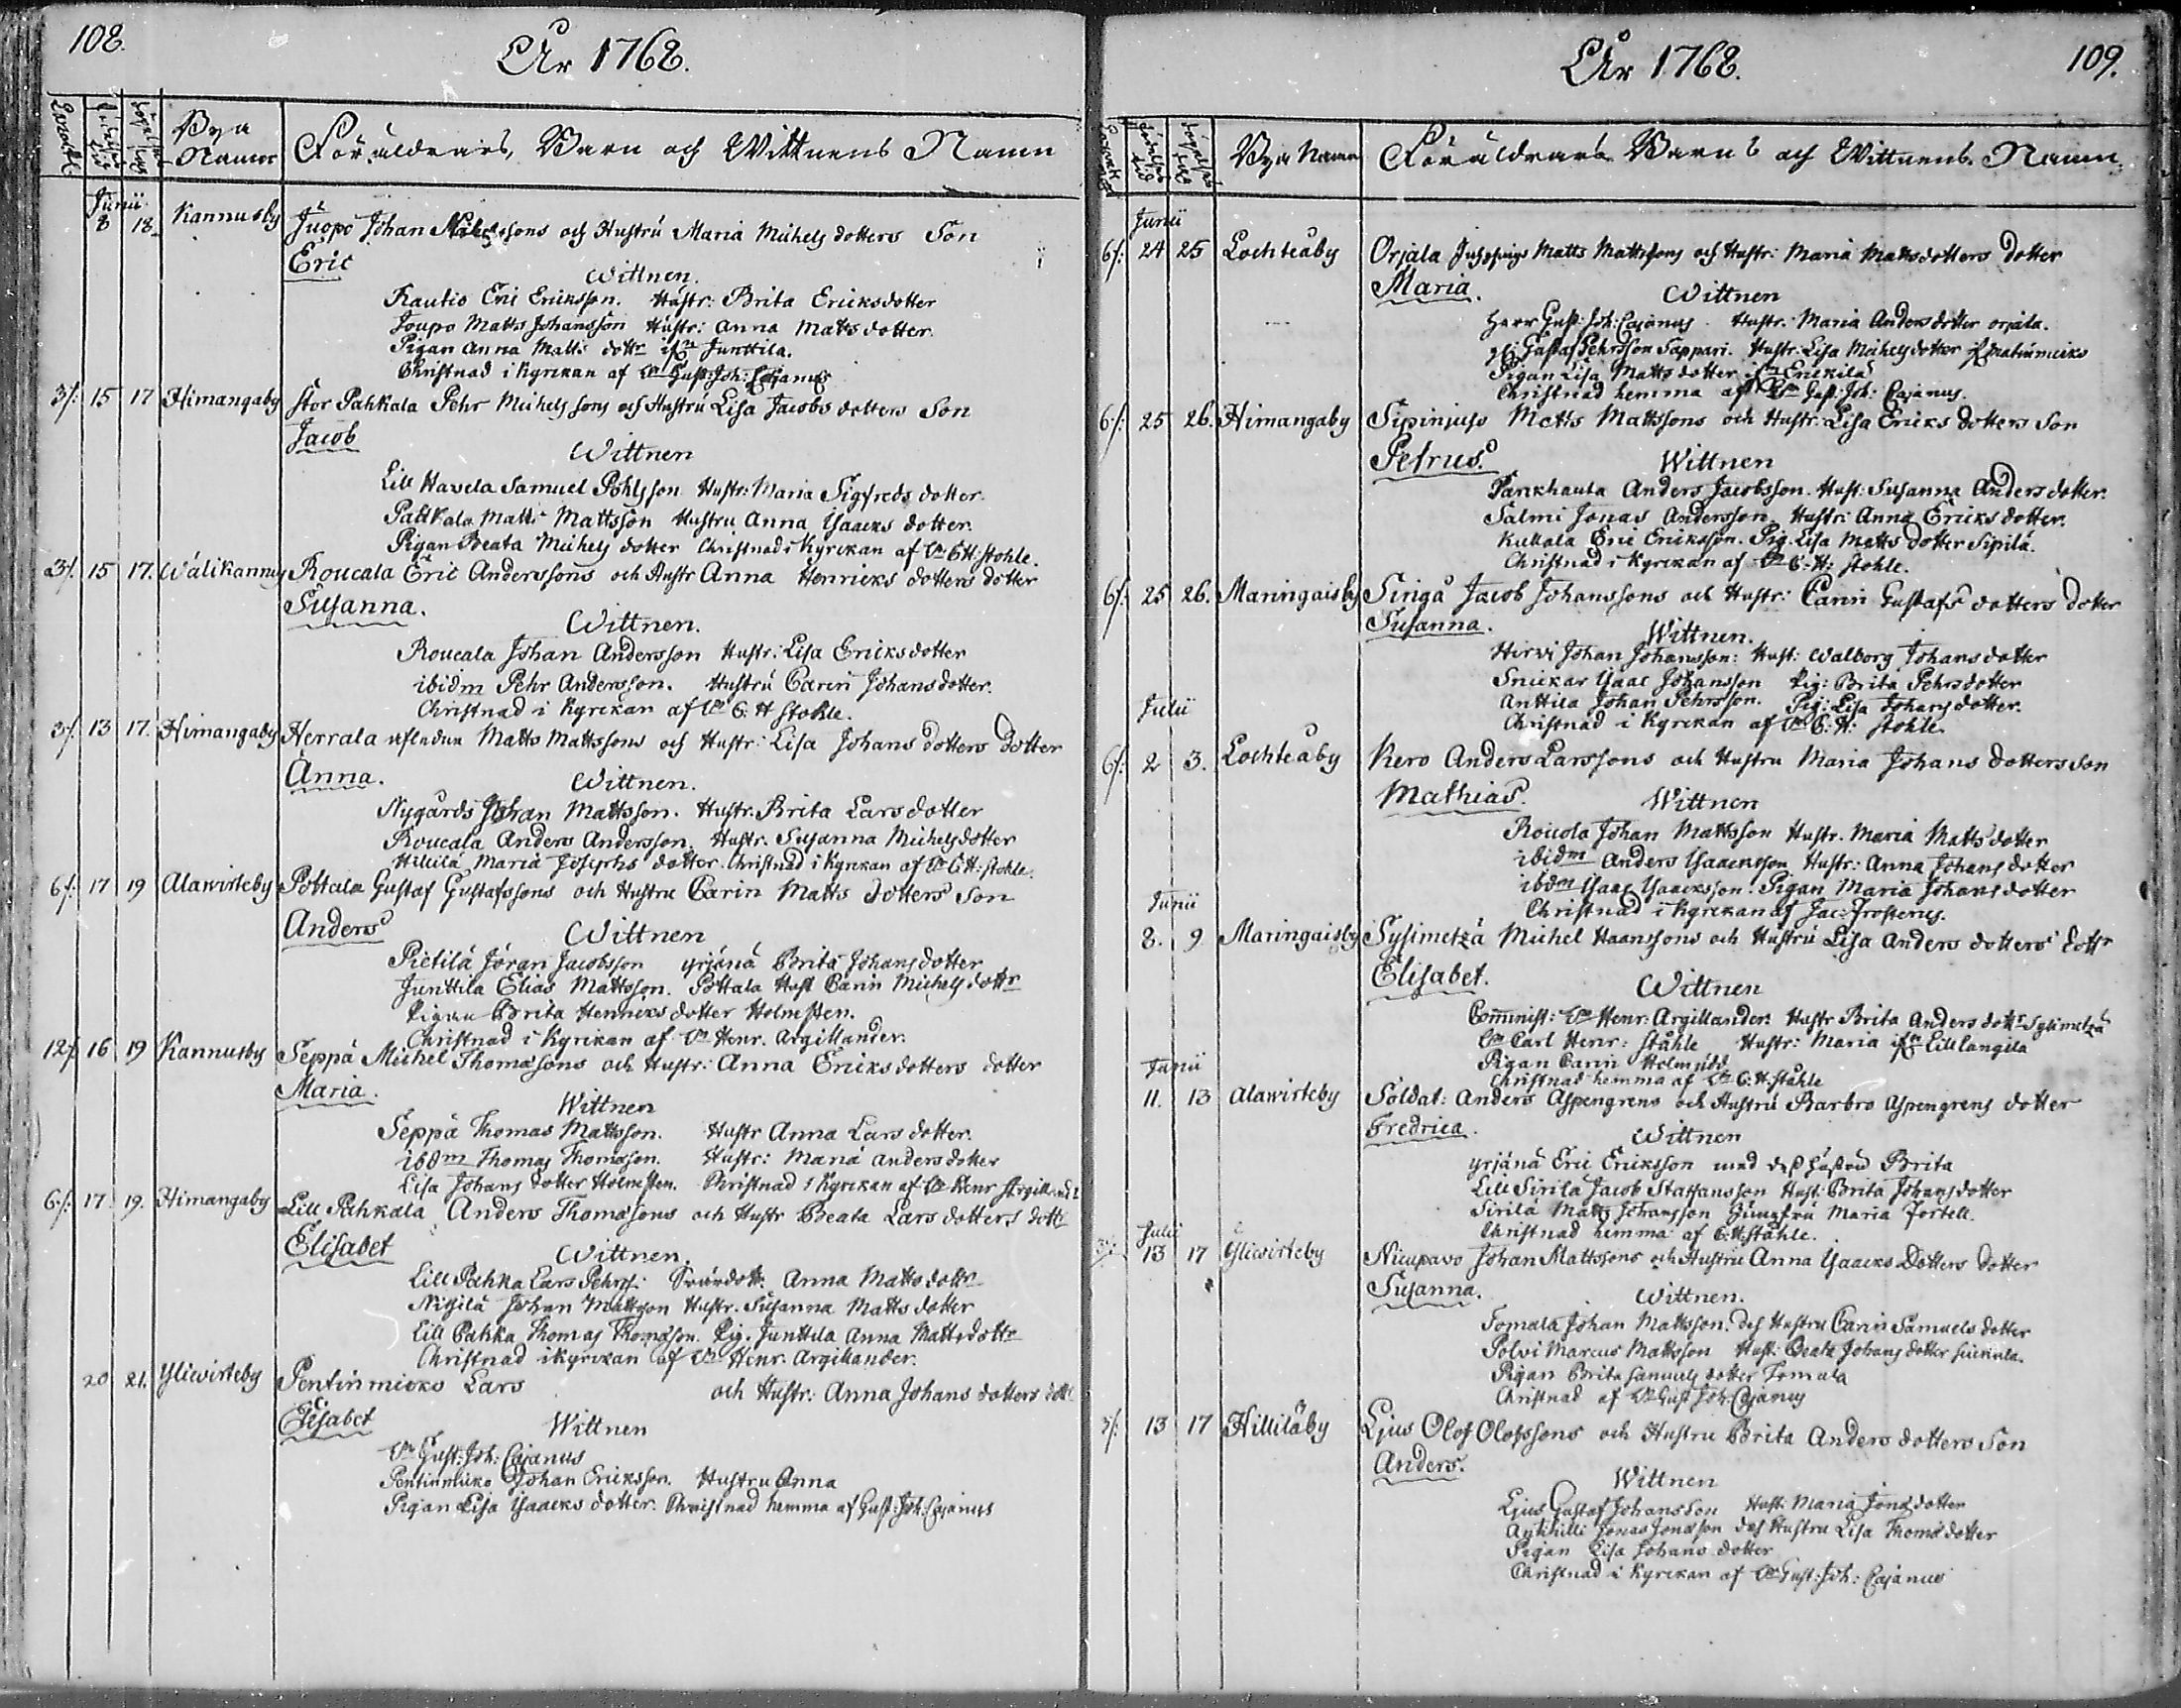 108.
År 1768.
Bya Namn
Föräldrars, Barn och Wittnens Namn
Junii
8 18. Kannusby Juopo Johan Michelssons och Hustru Maria Michels dotters Son
Eric
Wittnen.
Rautio Eric Ericksson. Hustr: Brita Ericksdotter
Joupo Matts Johansson Hustr: Anna Matts dotter.
Pigan Anna Matts dottr Junttila.
Christnad i Kyrckan af Gust: Joh: Cajanus
3/: 15 17 Himangaby Stor Pahkala Pehr Michelssons och Hustru Lisa Jacobs dotters Son
Jacob
Wittnen
Lill Havela Samuel Pohlsson Hustr: Maria Sigfreds dotter.
Pahkala Matts Mattsson Hustru Anna Isaacks dotter.
Pigan Beata Michels dotter Christnad i Kyrckan af C: H: Stohle.
3/. 15 17. Wälikannus Roucala Eric Anderssons och Hustr Anna Henricks dotters dotter
Susanna.
Wittnen.
Roucala Johan Andersson Hustr: Lisa Ericksdotter
ibidm Pehr Andersson. Hustru Carin Johansdotter.
Christnad i Kyrckan af C: H Stohle.
3/. 13 17. Himangaby Herrala Matts Mattssons och Hustr: Lisa Johans dotters dotter
Anna.
Wittnen.
Nygårds Johan Mattsson. Hustr. Brita Lars dotter
Roucala Anders Andersson. Hustr. Susanna Michelsdotter
Hillilä Maria Josephs dotter. Christnad i Kyrckan af C: H: Stohle.
6/: 17 19 Alawirteby Pottala Gustaf Gustafssons och Hustru Carin Matts dotters Son
Anders
Wittnen
Pietilä Jöran Jacobsson Yrjänä Brita Johansdotter
Junttila Elias Mattsson. Pottala Hust Carin Michels dottr
Pigan Brita Henricks dotter Holmsten.
Christnad i Kyrckan af Henr. Argillander.
12/ 16 19 Kannusby Seppä Michel Thomassons och Hustr: Anna Ericks dotters dotter
Maria.
Wittnen
Seppä Thomas Mattsson. Hustr Anna Lars dotter.
ibdm Thomas Thomasson. Hustr: Maria Anders dotter
Lisa Johans dotter Holmsten. Christnad i Kyrckan af Henr Argilland:
6/: 17 19. Himangaby Lill Pahkala Anders Thomassons och Hustr Beata Lars dotters dottr
Elisabet
Wittnen.
Lill Pahka Lars Pehrs: Anna Matts dottr
Niskilä Johan Mattson Hustr. Susanna Matts dotter
Lill Pahka Thomas Thomasson. Pig. Junttila Anna Mattsdottr
Christnad i Kyrckan af Henr. Argillander.
20 21. Yliwirteby Pentinmicko Lars och Hustr: Anna Johans dotters dott
Elisabet
Wittnen
Gust: Joh: Cajanus
Pentinmicko Johan Ericksson. Hustru Anna
Pigan Lisa Isaacks dotter. Christnad hemma af Gust: Joh: Cajanus
År 1768.
109.
Bya Namn
Föräldrars Barns och Wittnens Namn.
Junii
6/: 24 25 Lochteåby Orjala Matts Mattssons och Hustr: Maria Mattsdotters dotter
Maria.
Wittnen
Herr Gust: Joh: Cajanus Hustr. Maria Anders dotter Orjala.
Gustaf Pehrsson Sappari. Hustr. Lisa Michelsdotter Pentinmicko
Pigan Lisa Matts dotter Erickilä
Christnad hemma af Gust: Joh: Cajanus.
6/: 25 26. Himangaby Sipinjuso Matts Mattssons och Hustr: Lisa Ericks dotters Son
Petrus.
Wittnen
Pankhauta Anders Jacobsson. Hust: Susanna Anders dotter.
Salmi Jonas Andersson Hustr: Anna Ericks dotter.
Kukkala Eric Ericksson. Pig. Lisa Matts dotter Sipilä.
Christnad i Kyrckan af C: H: Stohle.
6/: 25 26. Maringaisby Singå Jacob Johanssons och Hustr: Carin Gustafs dotters dotter
Susanna.
Wittnen.
Hirvi Johan Johansson: Hust: Walborg Johansdotter
Snickar Isaac Johansson Pig: Brita Pehrsdotter
Anttila Johan Pehrsson. Pig: Lisa Johans dotter.
Christnad i Kyrckan af C: H: Stohle.
Julii
6/: 2 3. Lochteåby Kero Anders Larssons och Hustru Maria Johans dotters son
Mathias.
Wittnen
Roucola Johan Mattsson Hustr. Maria Matts dotter
ibidm Anders Isaacksson Hustr: Anna Johans dotter
ibdm Isaac Isaacksson. Pigan Maria Johans dotter
Christnad i Kyrckan af Jac: Frosterus.
Junii
8. 9 Maringaisby Sysimetzä Michel Haanssons och Hustru Lisa Anders dotters dottr
Elisabet.
Wittnen
Comminist: Henr: Argillander. Hustr Brita Anders dottr Sysimetzä
Carl Henr: Ståhle Hustr: Maria Lill Langila
Pigan Carin Holmudd
Christnad hemma af C: H: Ståhle
Junii
11. 13 Alawirteby Soldat: Anders Aspengrens och Hustru Barbro Aspengrens dotter
Fredrica.
Wittnen
Yrjänä Eric Ericksson med dess hustru Brita
Lill Sirilä Jacob Staffansson Hust: Brita Johansdotter
Sirilä Matts Johansson Jungfru Maria Forsell.
Christnad hemma af C: H: Ståhle.
Julii
3/: 13 17 Yliwirteby Niempavo Johan Mattssons och Hustru Anna Isaacks Dotters dotter
Susanna.
Wittnen.
Tomala Johan Mattsson. des Hustru Carin Samuels dotter
Polvi Marcus Mattsson Hust: Beata Johans dotter
Pigan Brita Samuels dotter Tomala
Christnad af Gust Joh: Cajanus
3/: 13 17 Hilliläby Ljus Olof Olofssons och Hustru Brita Anders dotters Son
Anders.
Wittnen
Ljus Gustaf Johansson Hust: Maria Jonsdotter
Anthilli Jonas Jonasson des Hustru Lisa Thomas dotter
Pigan Lisa Johans dotter
Christnad i Kyrckan af Gust: Joh: Cajanus